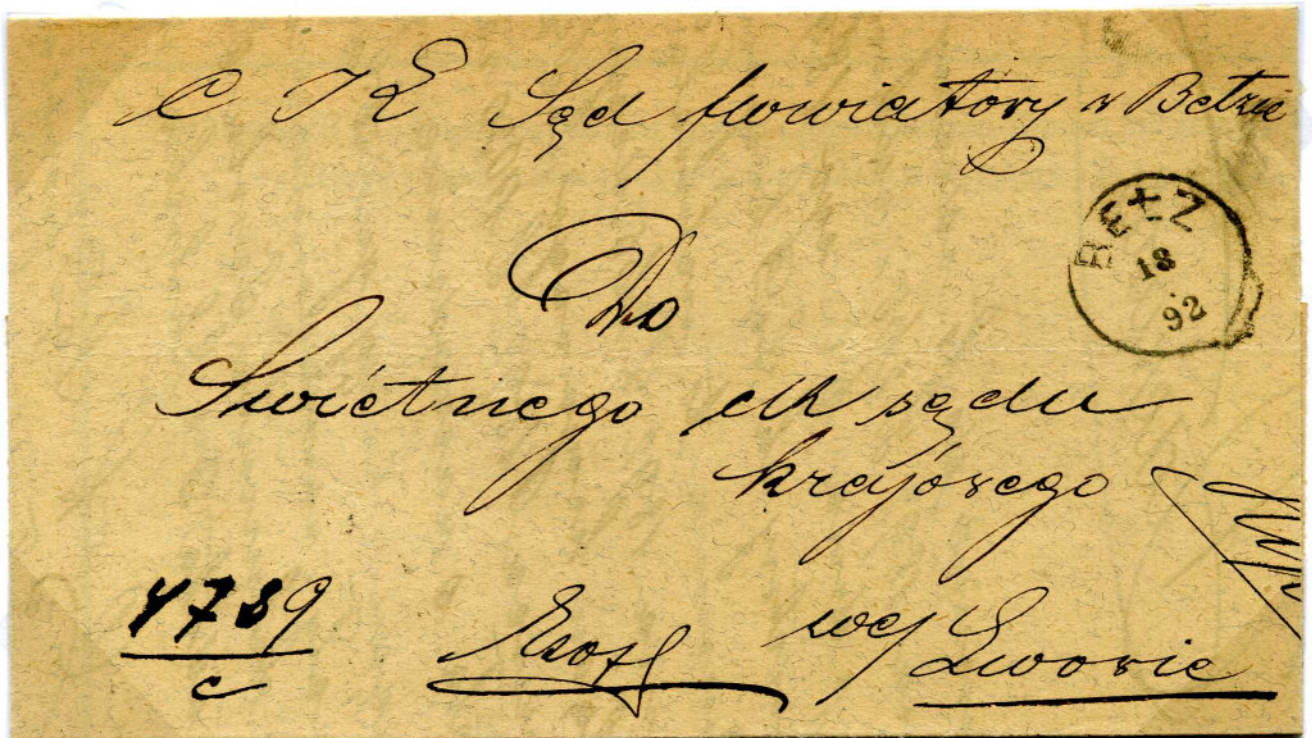 C K Sąd powiatowy w Bełzie
BEŁZ
18
92
Do
Swiétnego ck sądu
krajowego
4789
c
we Lwowie